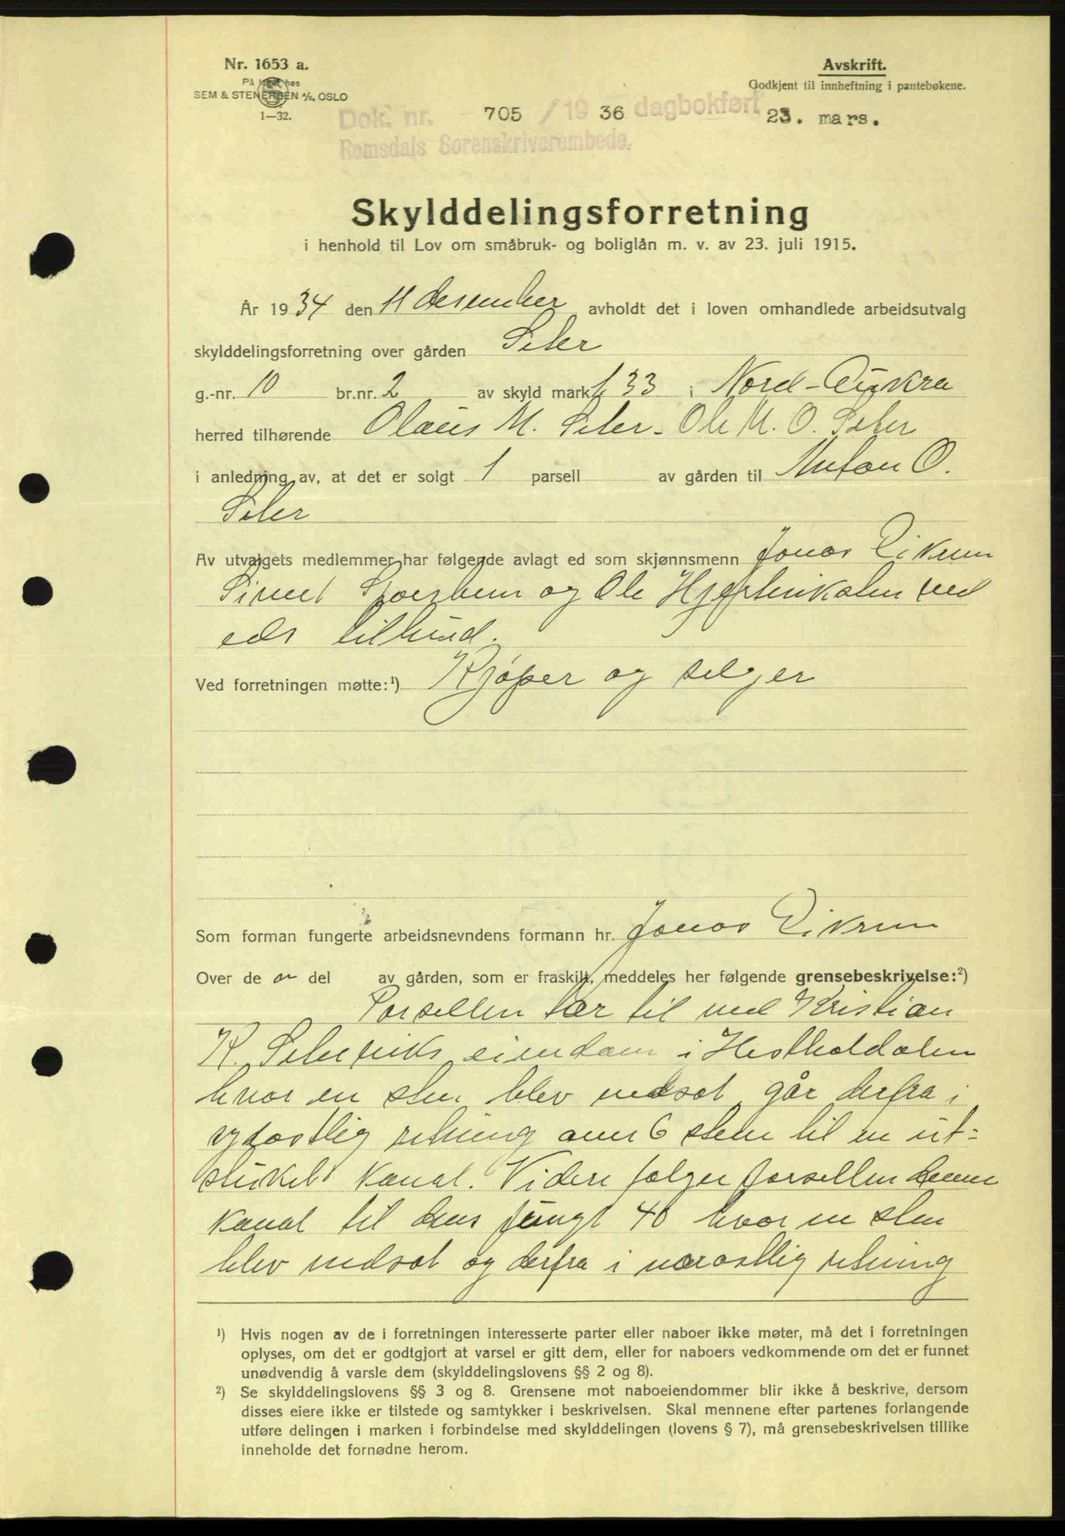 Nr. 1653 a.
På lager hos
SEM & STENERSEN A/S, OSLO
1—32.
Avskrift.
Godkjent til innheftning i pantebøkene.
Dok. nr. 705 / 1936 dagbokført 23. mars.
Romsdals Sorenskriverembede.
Skylddelingsforretning
i henhold til Lov om småbruk- og boliglån m. v. av 23. juli 1915.
År 1934 den 11 desember avholdt det i loven omhandlede arbeidsutvalg
skylddelingsforretning over gården Seter
g.-nr. 10 br.nr. 2 av skyld mark 1,33 i Nord-Aukra
herred tilhørende Olaus M. Seter - Ole M. O. Seter
i anledning av, at det er solgt 1 parsell av gården til Anton O.
Seter
Av utvalgets medlemmer har følgende avlagt ed som skjønnsmenn Jonas Eikrem
og Ole ved
eds tilbud.
Ved forretningen møtte:¹) Kjøper og selger
Som forman fungerte arbeidsnevndens formann hr. Jonas Eikrem
Over de n del av gården, som er fraskilt, meddeles her følgende grensebeskrivelse:²)
Parsellen tar til ved Kristian
K. Seterviks eiendom i Hestholdalen
hvor en sten blev nedsat, går derfra i
sydøstlig retning over 6 stene til en ut-
stukket kanal. Videre følger parsellen denne
kanal til dens pungt 40 hvor en sten
blev nedsat og derfra i nordostlig retning
¹) Hvis nogen av de i forretningen interesserte parter eller naboer ikke møter, må det i forretningen
oplyses, om det er godtgjort at varsel er gitt dem, eller for naboers vedkommende om det er funnet
unødvendig å varsle dem (skylddelingslovens §§ 2 og 8).
²) Se skylddelingslovens §§ 3 og 8. Grensene mot naboeiendommer blir ikke å beskrive, dersom
disses eiere ikke er tilstede og samtykker i beskrivelsen. Skal mennene efter partenes forlangende
utføre delingen i marken i forbindelse med skylddelingen (lovens § 7), må grensebeskrivelsen tillike
inneholde det fornødne herom.